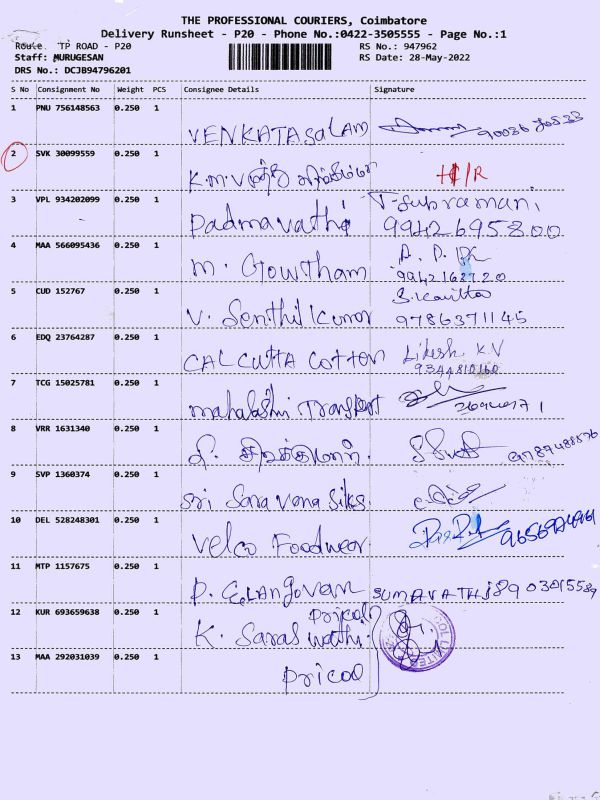 THE PROFESSIONAL COURIERS, Coimbatore
Delivery Runsheet - P20 - Phone No.:0422-3505555 - Page No.:1
Route. TP ROAD - P20
RS No.: 947962
Staff: MURUGESAN
RS Date: 28-May-2022
DRS No.: DCJB94796201
S No Consignment No Weight PCS Consignee Details Signature
1 PNU 756148563 0.250 1
VENKATASALAM
2 SVK 30099559 0.250 1
K.M.V
3 VPL 934202099 0.250 1
Padmavathi T-Subramani
9942695800
4 MAA 566095436 0.250 1
M. Gowtham
5 CUD 152767 0.250 1
V. Senthil Kumar 9786371145
6 EDQ 23764287 0.250 1
CALCUTTA COTTON Likesh K.V
9344810160
7 TCG 15025781 0.250 1
Mahalakshmi Transport
8 VRR 1631340 0.250 1
9 SVP 1360374 0.250 1
Sri Saravana Silks.
10 DEL 528248301 0.250 1
Velco Footwear.
11 MTP 1157675 0.250 1
P. ELANGOVAN SUMAVATHI
12 KUR 693659638 0.250 1
Pricol
K. Saraswathi.
13 MAA 292031039 0.250 1
Pricol